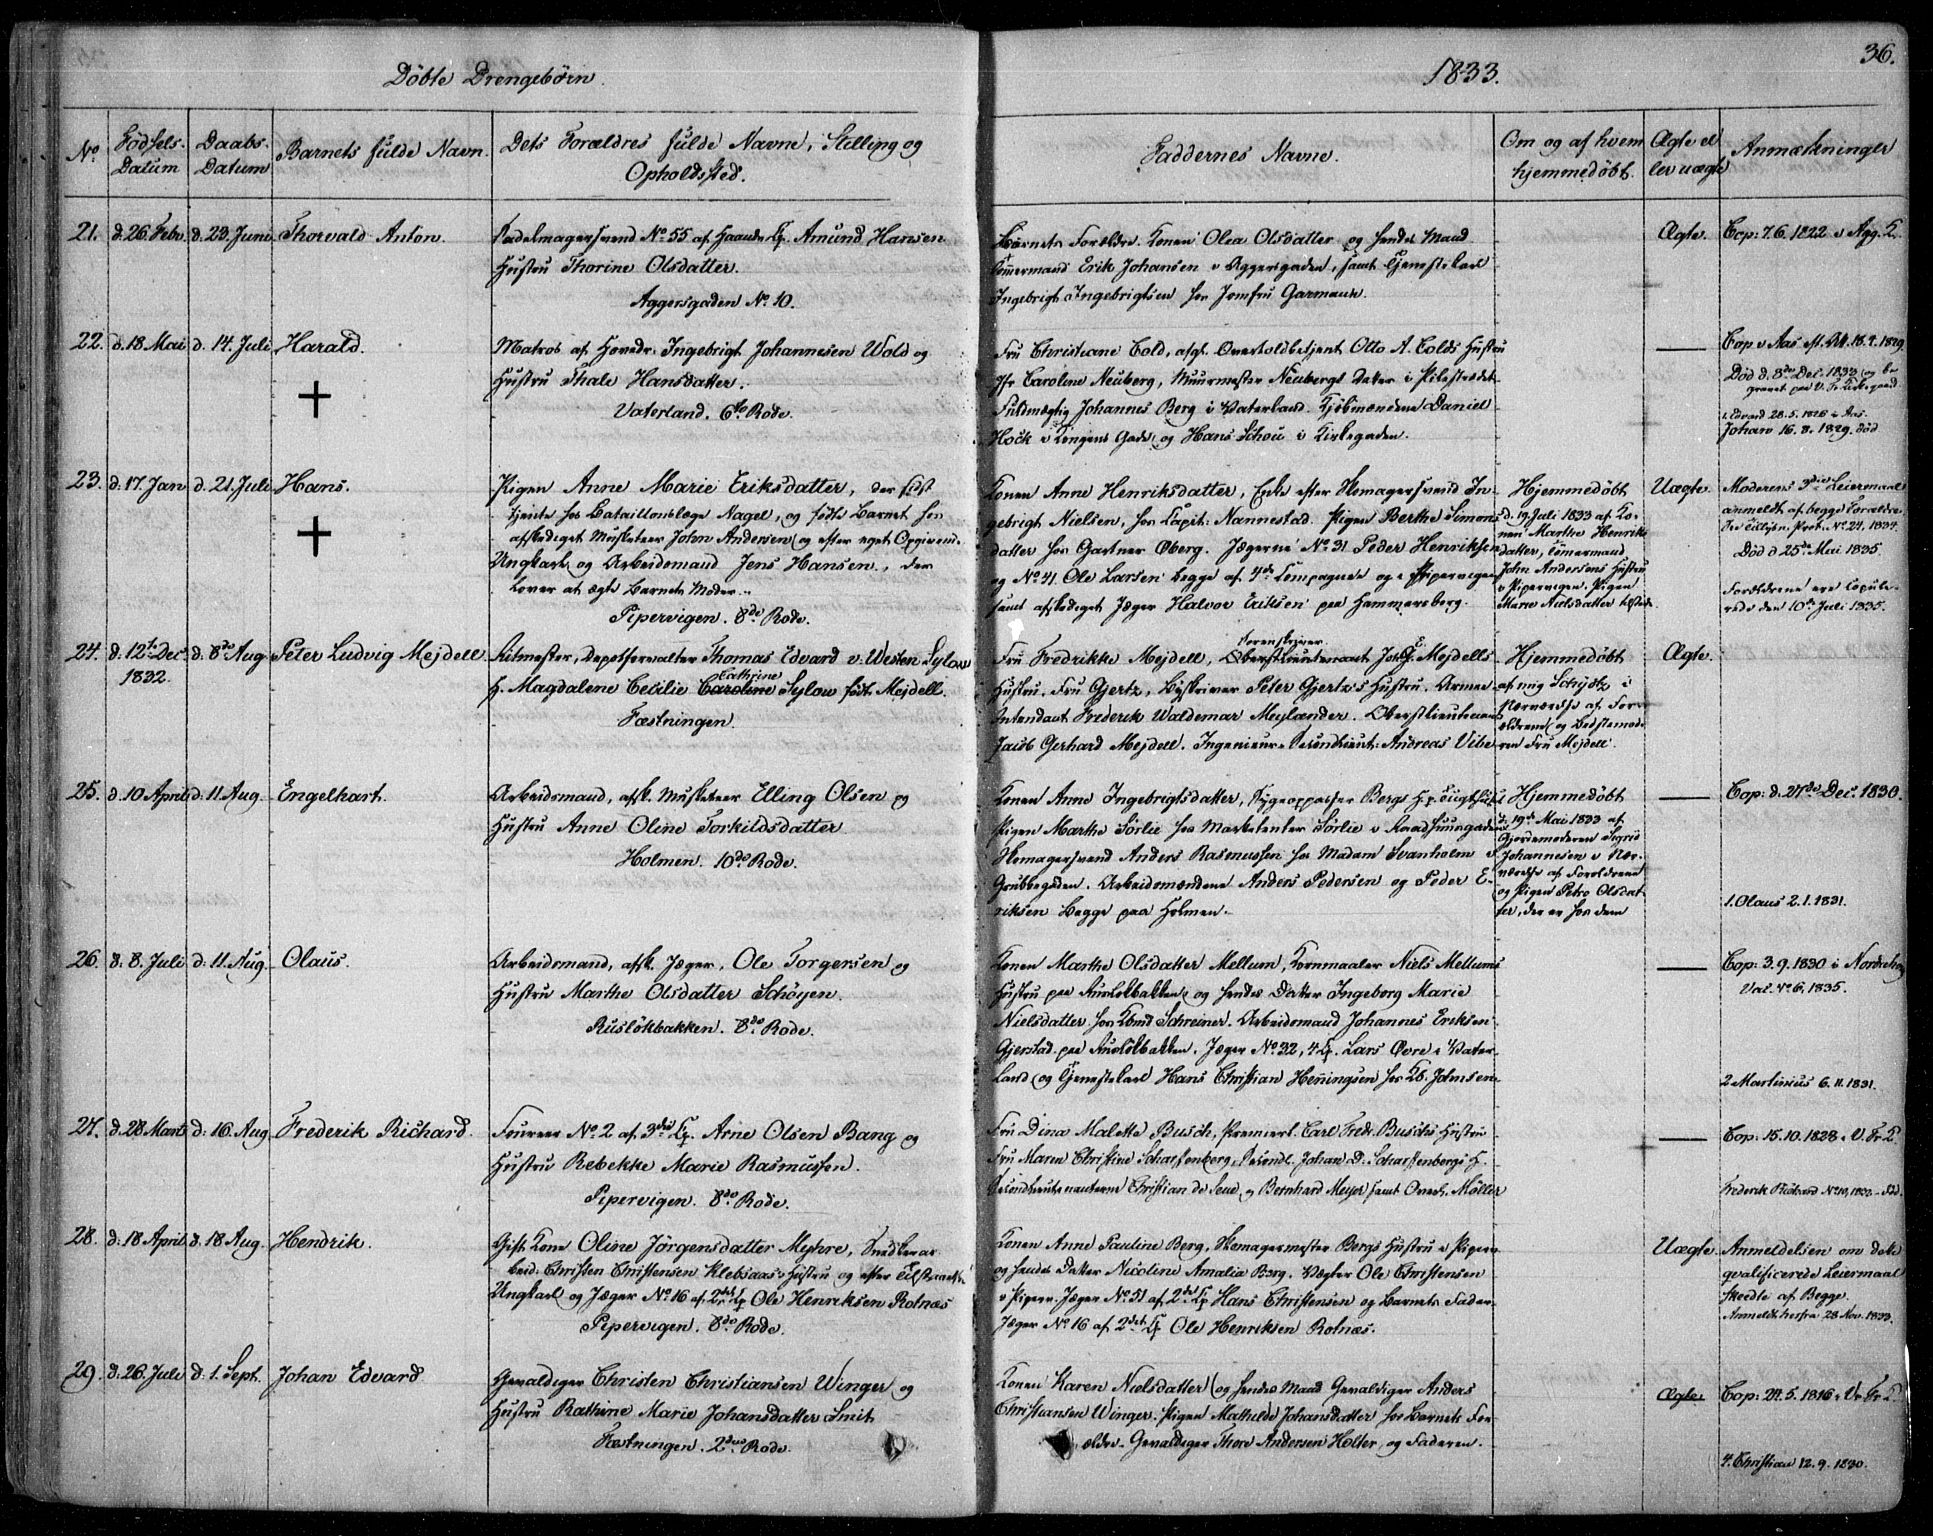 36.
Döbte Drengebörn.
1833.
No
Födsels-
Datum
Daabs-
Datum
Barnets fulde Navn.
Dets Forældres fulde Navne, Stilling og
Opholdssted.
Faddernes Navne.
Om og af hvem
hjemmedöbt.
Ægte el
ler uægte
Anmærkninger
21.
d. 26. Febr.
d. 23. Juni
Thorvald Anton.
Sadelmagersvend No 55 af Haandv. Cp. Amund Hansen
Hustru Thorine Olsdatter.
Aggersgaden No 10.
Barnets Forældre. Konen Olea Olsdatter og hendes Mand
Tömmermand Erik Johansen i Aggersgaden, samt Tjenestekarl
Ingebrigt Ingebrigtsen hos Jomfru Garmann.
Ægte.
Cop: 7.6.1822 i Agg. K.
22.
d. 18 Mai
d. 14. Juli
Harald.
Matros af Hovedr: Ingebrigt Johannesen Wold og
Hustru Thale Hansdatter.
Vaterland. 6te Rode.
Fru Christiane Cold, afgl. Overtoldbetjent Otto A. Colds Hustru
Jfr Caroline Neuberg, Muurmester Neubergs Datter i Pilestrædet
Fuldmægtig Johannes Berg i Vaterland. Kjöbmændene Daniel
Hock i Kongens Gade og Hans Schou i Kirkegaden.
Cop i Aas eft. Att. 18.9.1829
Död d. 8de Dec. 1833 og be
gravet paa V. Fr. Kirkegaard
1. Edvard 28.5.1826 i Aas.
Johan 16.8.1829. död
23.
d. 17. Jan
d. 21. Juli
Hans.
Pigen Anne Marie Eriksdatter, der sidst
tjente hos Bataillonslæge Nagel, og födte Barnet hos
afskediget Musketeer John Andersen og efter eget Opgivend.
Ungkarl og Arbeidsmand Jens Hansen, der
lover at ægte Barnets Moder.
Pipervigen. 8de Rode.
Konen Anne Henriksdatter, Enke efter Skomagersvend In-
gebrigt Nielsen, hos Capit: Nannestad. Pigen Berthe Simons
datter hos Gartner Oberg. Jægerne No 31 Peder Henriksen
og No 41 Ole Larsen begge af 4de Compagnie og i Pipervigen
samt afskediget Jæger Halvor Eriksen paa Hammersborg.
Hjemmedöbt
d. 19 Juli 1833 af Ko-
nen Marthe Henriks
datter, Tömermand
John Andersens Hustru
i Pipervigen. Pigen
Marie Nielsdatter tilstede.
Uægte.
Moderens 3die Leiermaal
anmeldt af begge Forældre
Prot. No 24. 1834.
Död d. 25de Mai 1835.
Forældrene ere Copule-
rede den 10de Juli 1835.
24.
d. 12te Dec.
1832.
d. 8de Aug
Peter Ludvig Mejdell
Ritmester, Depotforvalter Thomas Edvard v. Westen Sylow
Cathrine
H. Magdalene Cecilie Caroline Sylow född Mejdell.
Fæstningen.
Sorenskriver
Fru Fredrikke Mejdell, Oberstlieutenant Jac. G. Mejdells
Hustru. Fru Gjertz, Byskriver Peter Gjertz's Hustru. Armee
Intendant Frederik Waldemar Meylænder. Oberstlieutenant
Jacob Gerhard Mejdell. Ingenieur-Secondlieut: Andreas Vibe
Hjemmedöbt
af mig Schydtz i
Nærværelse af For
ældrene og Bedstemode
ren Fru Mejdell.
Ægte.
25.
d. 10 April
d. 11 Aug.
Engelhart.
Arbeidsmand, afsk. Musketeer Elling Olsen og
Hustru Anne Oline Torkildsdatter
Holmen. 10de Rode.
Konen Anne Ingebrigtsdatter, Sygeopasser Bergs H. p. Tugthuset
Pigen Marthe Sörlie hos Marketenter Sörlie i Raadhuusgaden
Skomagersvend Anders Rasmussen hos Madam Svanholm i
Grubbegaden. Arbeidsmændene Anders Pedersen og Peder E-
riksen begge paa Holmen.
Hjemmedöbt
d. 19de Mai 1833 af
Gjordemoderen Sigrid
Johannesen i Nær-
værelse af Forældrene
og Pigen Petra Olsdat-
ter, der er hos dem
Cop: d. 27de Dec. 1830.
1. Olaus 2.1.1831.
26.
d. 8. Juli
d. 11. Aug.
Olaus.
Arbeidsmand, afsk. Jæger, Ole Torgersen og
Hustru Marthe Olsdatter Schöyen.
Ruslökbakken. 8de Rode.
Konen Marthe Olsdatter Mellum, Kornmaaler Niels Mellums
Hustru paa Ruslökbakken og hendes Datter Ingeborg Marie
Nielsdatter hos Kbmd Schreiner. Arbeidsmand Johannes Eriksen
Gjerstad paa Ruslökbakken. Jæger No 32, 4 Cp. Lars Övre i Vater-
land og Tjenestekarl Hans Christian Henningsen hos Kb. Johnsen
Cop: 3.9.1830 i Norderhov
Vac. No 6. 1835.
2 Martinius 6.11.1831.
27.
d. 28. Marts
d. 16 Aug
Frederik Richard.
Foureer No 2 af 3die Cp. Arne Olsen Bang og
Hustru Rebekke Marie Rasmussen.
Pipervigen. 8de Rode.
Fru Dina Malette Busch, Premierl. Carl Fredr. Buschs Hustru
Fru Maren Christine Scharffenberg, Secondl. Johan D. Scharffenbergs H.
Secondlieutenanterne Christian de Seue og Bernhard Meyer samt Oversk. Möller
Cop: 15.10.1828 i V. Fr. K.
Frederik Richard No 10, 1832 - död.
28.
d. 18 April
d. 18 Aug.
Hendrik.
Gift Kone Oline Jörgensdatter Myhre, Snedkerar
beid. Christen Christensen Klebsaas's Hustru og efter Tilstaaelse
Ungkarl og Jæger No 16 af 2det Cp Ole Henriksen Rotnæs
Pipervigen. 8de Rode.
Konen Anne Pauline Berg, Skomagermester Bergs Hustru i Piperv.
og hendes Datter Nicoline Amalia Berg. Vægter Ole Christensen
i Piperv. Jæger No 51 af 2det Cp Hans Christensen og Barnets Fader
Jæger No 16 af 2det Cp Ole Henriksen Rotnæs.
Uægte.
Anmeldelsen om dette
qvalificerede Leiermaal
skeedte af Begge.
Anmeldt herfra 28 Nov. 1833.
29.
d. 26. Juli
d. 1. Sept.
Johan Edvard
Gevaldiger Christen Christiansen Winger og
Hustru Kathine Marie Johansdatter Smit
Fæstningen. 2den Rode.
Konen Karen Nielsdatter og hendes Mand Gevaldiger Anders
Christiansen Winger. Pigen Mathilde Johansdatter hos Barnets For-
ældre. Gevaldiger Thore Andersen Holter, og Faderen.
Ægte.
Cop: 21.5.1816 i Vr. Fr. K.
4. Christian 12.9.1830.